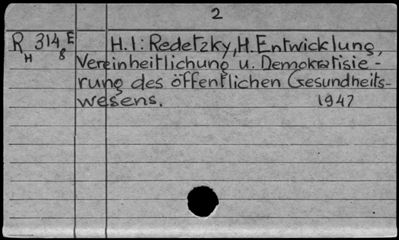 2
R 314 E H.1: Redetzky, H. Entwicklung,
H 8 Vereinheitlichung u. Demokratisie-
rung des öffentlichen Gesundheits-
wesens. 1947